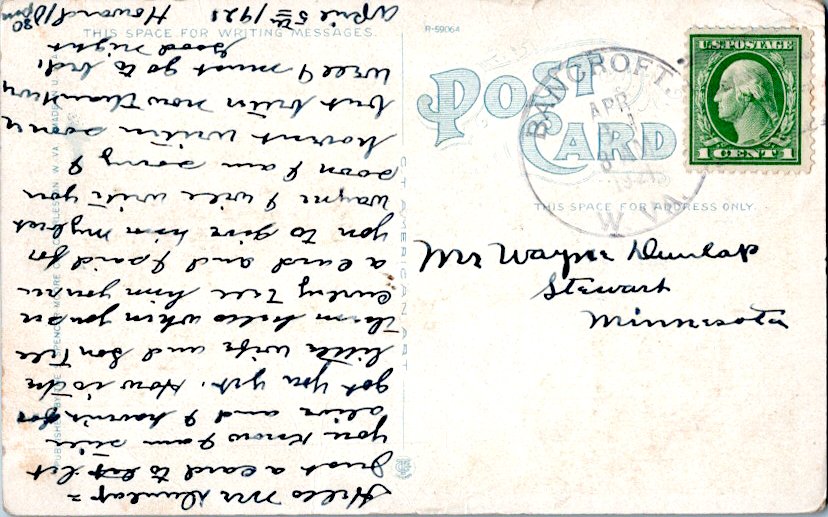 THIS SPACE FOR WRITING MESSAGES.
R-59064
POST CARD
THIS SPACE FOR ADDRESS ONLY.
BANCROFT.
APR
W. VA.
U.S. POSTAGE
1 CENT 1
Mr Wayne Dunlap
Stewart
Minnesota
C.T. AMERICAN ART
Hello Mr Dunlap =
Just a card to let
you know I am still
alive and I havnt for
got you yet. How is the
little wife and son Tell
them hello when you see
Curley Tell him you see
a card and I paid for
you to give him my best
Wayne I will write you
soon I am sorry I
havent written sooner
but bitin now than
Well I must go to bed.
Good night
April 5th/1921
Howard